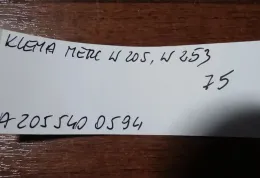 KLEMA MERC W205, W253
75
A 205 540 0594